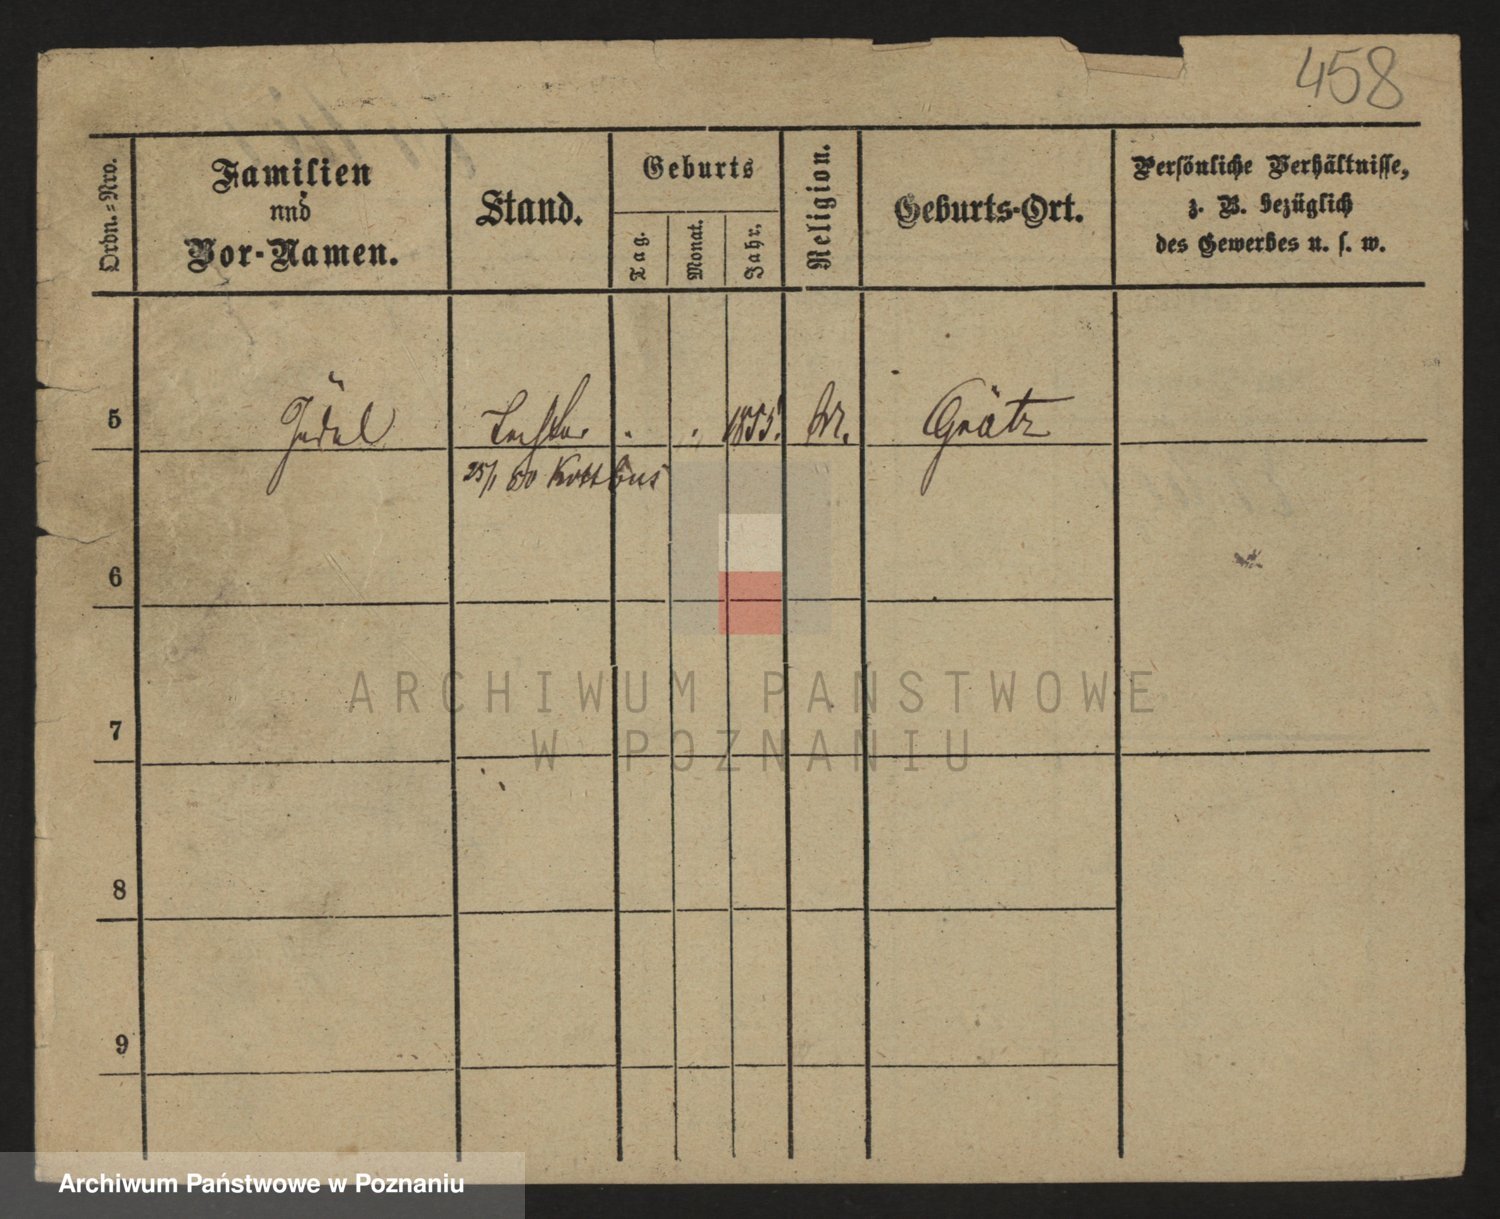 458
Ordn.-Nro.
Familien
und
Vor-Namen.
Stand.
Geburts
Tag.
Monat.
Jahr.
Religion.
Geburts-Ort.
Persönliche Verhältnisse,
z. B. bezüglich
des Gewerbes u. s. w.
5 Tochter . . 1855. Grätz
25/1 80 Kottbus
6
7
8
9
ARCHIWUM PAŃSTWOWE
W POZNANIU
Archiwum Państwowe w Poznaniu